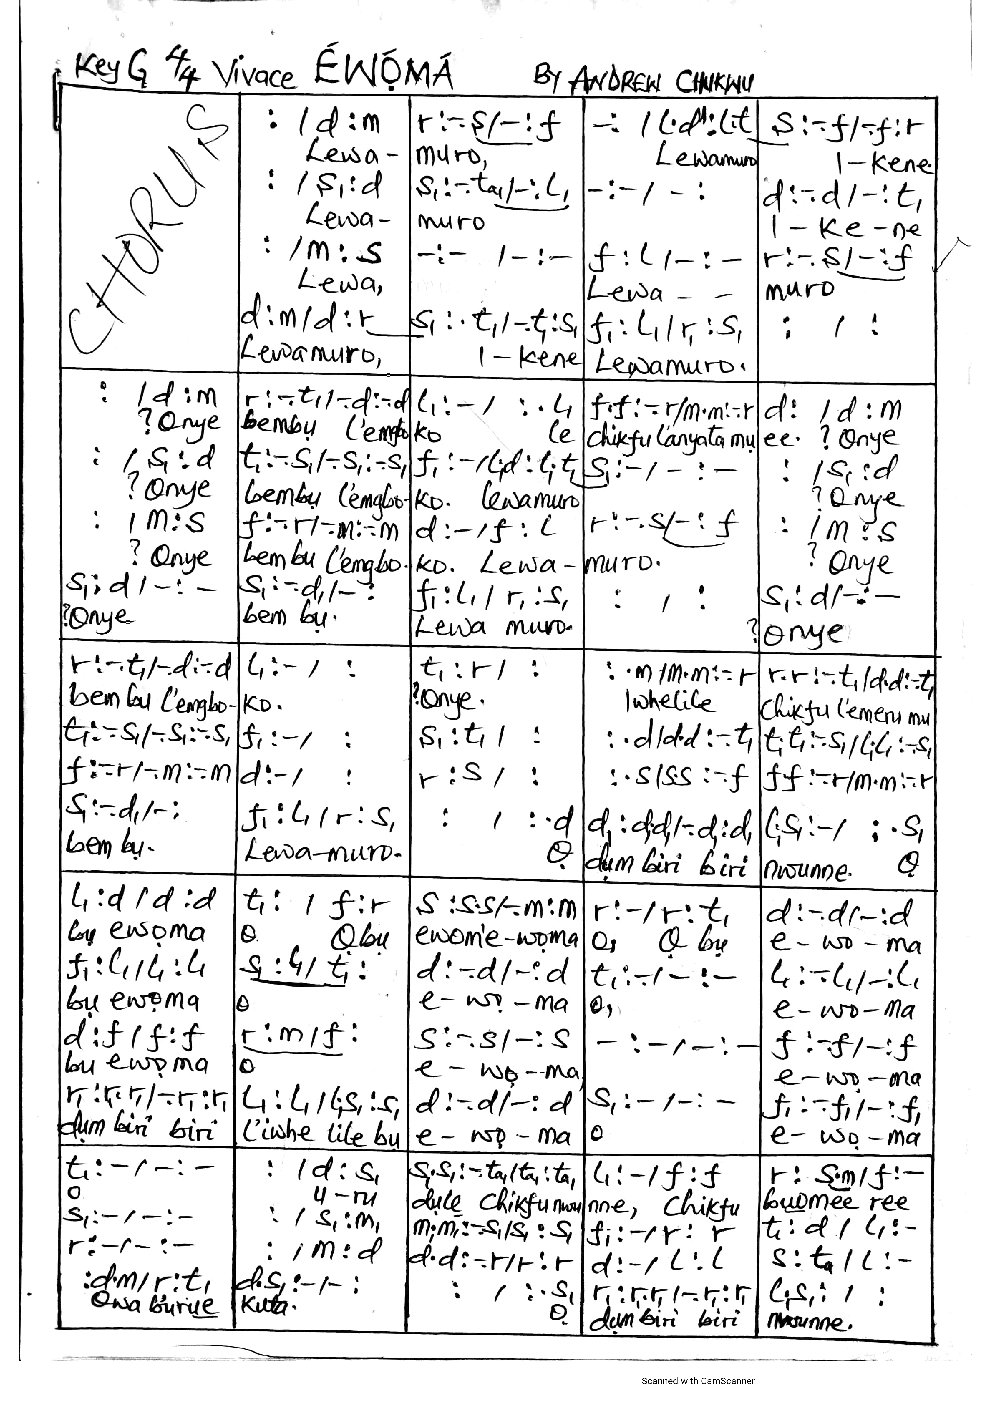 Key G 4/4 Vivace ÉWỌ́MÁ BY ANDREW CHUKWU
CHORUS
: / d : m
Lewa-
: / s₁ : d
Lewa-
: / m : s
Lewa,
d : m / d : r
Lewamuro,
r :-. s / - : f
muro,
s₁ :-. ta₁ / - : l₁
muro
- : - / - : -
s₁ : . t₁ / -. t₁ : s₁
I-kene
- : / l.d' : l.t
Lewamuro
- : - / - :
f : l / - : -
Lewa - -
f₁ : l₁ / r₁ : s₁
Lewamuro.
s :-. f / -. f : r
I-kene
d :-. d / - : t₁
I-Ke-ne
r :-. s / - : f
muro
: / :
: / d : m
? Onye
: / s₁ : d
? Onye
: / m : s
? Onye
s₁ : d / - : -
?Onye
r :-. t₁ / -. d :-. d
bembụ l'emgbo
t₁ :-. s₁ / -. s₁ :-. s₁
bembụ l'emgbo-
f :-. r / -. m :-. m
bembu l'emgbo.
s₁ :-. d₁ / - :
bem bụ.
l₁ : - / : . l₁
ko le
f₁ : - / l₁.d : l₁.t₁
ko. lewamuro
d : - / f : l
ko. Lewa-
f₁ : l₁ / r₁ : s₁
Lewa muro.
f.f :-. r / m.m :-. r
chikfu l'anyata mụ
s₁ : - / - : -
r :-. s / - : f
muro.
: / :
d : / d : m
ee. ? Onye
: / s₁ : d
? Onye
: / m : s
? Onye
s₁ : d / - : -
? Onye
r :-. t₁ / -. d :-. d
bem bu l'emgbo-
t₁ :-. s₁ / -. s₁ :-. s₁
f :-. r / -. m :-. m
s₁ :-. d₁ / - :
bem bụ.
l₁ : - / :
ko.
f₁ : - / :
d : - / :
f₁ : l₁ / r : s₁
Lewa-muro.
t₁ : r / :
?Onye.
s₁ : t₁ / :
r : s / :
: / : . d
Ọ
: . m / m.m :-. r
Iwhelile
: . d / d.d :-. t₁
: . s / s.s :-. f
d₁ : d₁.d₁ / -. d₁ : d₁
dụm biri biri
r.r :-. t₁ / d.d :-. t₁
Chikfu l'emeru mu
t₁.t₁ :-. s₁ / l₁.l₁ :-. s₁
f.f :-. r / m.m :-. r
l₁.s₁ : - / : . s₁
nwunne. Ọ
l₁ : d / d : d
bụ ewọma
f₁ : l₁ / l₁ : l₁
bụ ewọma
d : f / f : f
bu ewọma
r₁ : r₁.r₁ / -. r₁ : r₁
dụm biri biri
t₁ : / f : r
o Ọ bụ
s₁ : l₁ / t₁ :
o
r : m / f :
o
l₁ : l₁ / l₁.s₁ : s₁
l'iwhe lile bụ
s : s.s / -. m : m
ewom'e-wọma
d :-. d / - : d
e-wọ-ma
s :-. s / - : s
e-wọ-ma
d :-. d / - : d
e-wọ-ma
r : - / r : t₁
o, Ọ bụ
t₁ : - / - : -
o,
- : - / - : -
s₁ : - / - : -
o
d :-. d / - : d
e-wọ-ma
l₁ :-. l₁ / - : l₁
e-wo-ma
f :-. f / - : f
e-wọ-ma
f₁ :-. f₁ / - : f₁
e-wọ-ma
t₁ : - / - : -
o
s₁ : - / - : -
r : - / - : -
: d.m / r : t₁
Ọwa bụruẹ
: / d : s₁
u-ru
: / s₁ : m₁
: / m : d
d.s₁ : - / - :
Kuta.
s₁.s₁ :-. ta₁ / ta₁ : ta₁
dụlẹ Chikfu nwu
m₁.m₁ :-. s₁ / s₁ : s₁
d.d :-. r / r : r
: / : . s₁
Ọ
l₁ : - / f : f
nne, Chikfu
f₁ : - / r : r
d : - / l : l
r₁ : r₁.r₁ / -. r₁ : r₁
dụm biri biri
r : s.m / f : -
buọmee ree
t₁ : d / l₁ : -
s : ta / l : -
l₁.s₁ : / :
nwunne.
Scanned with CamScanner